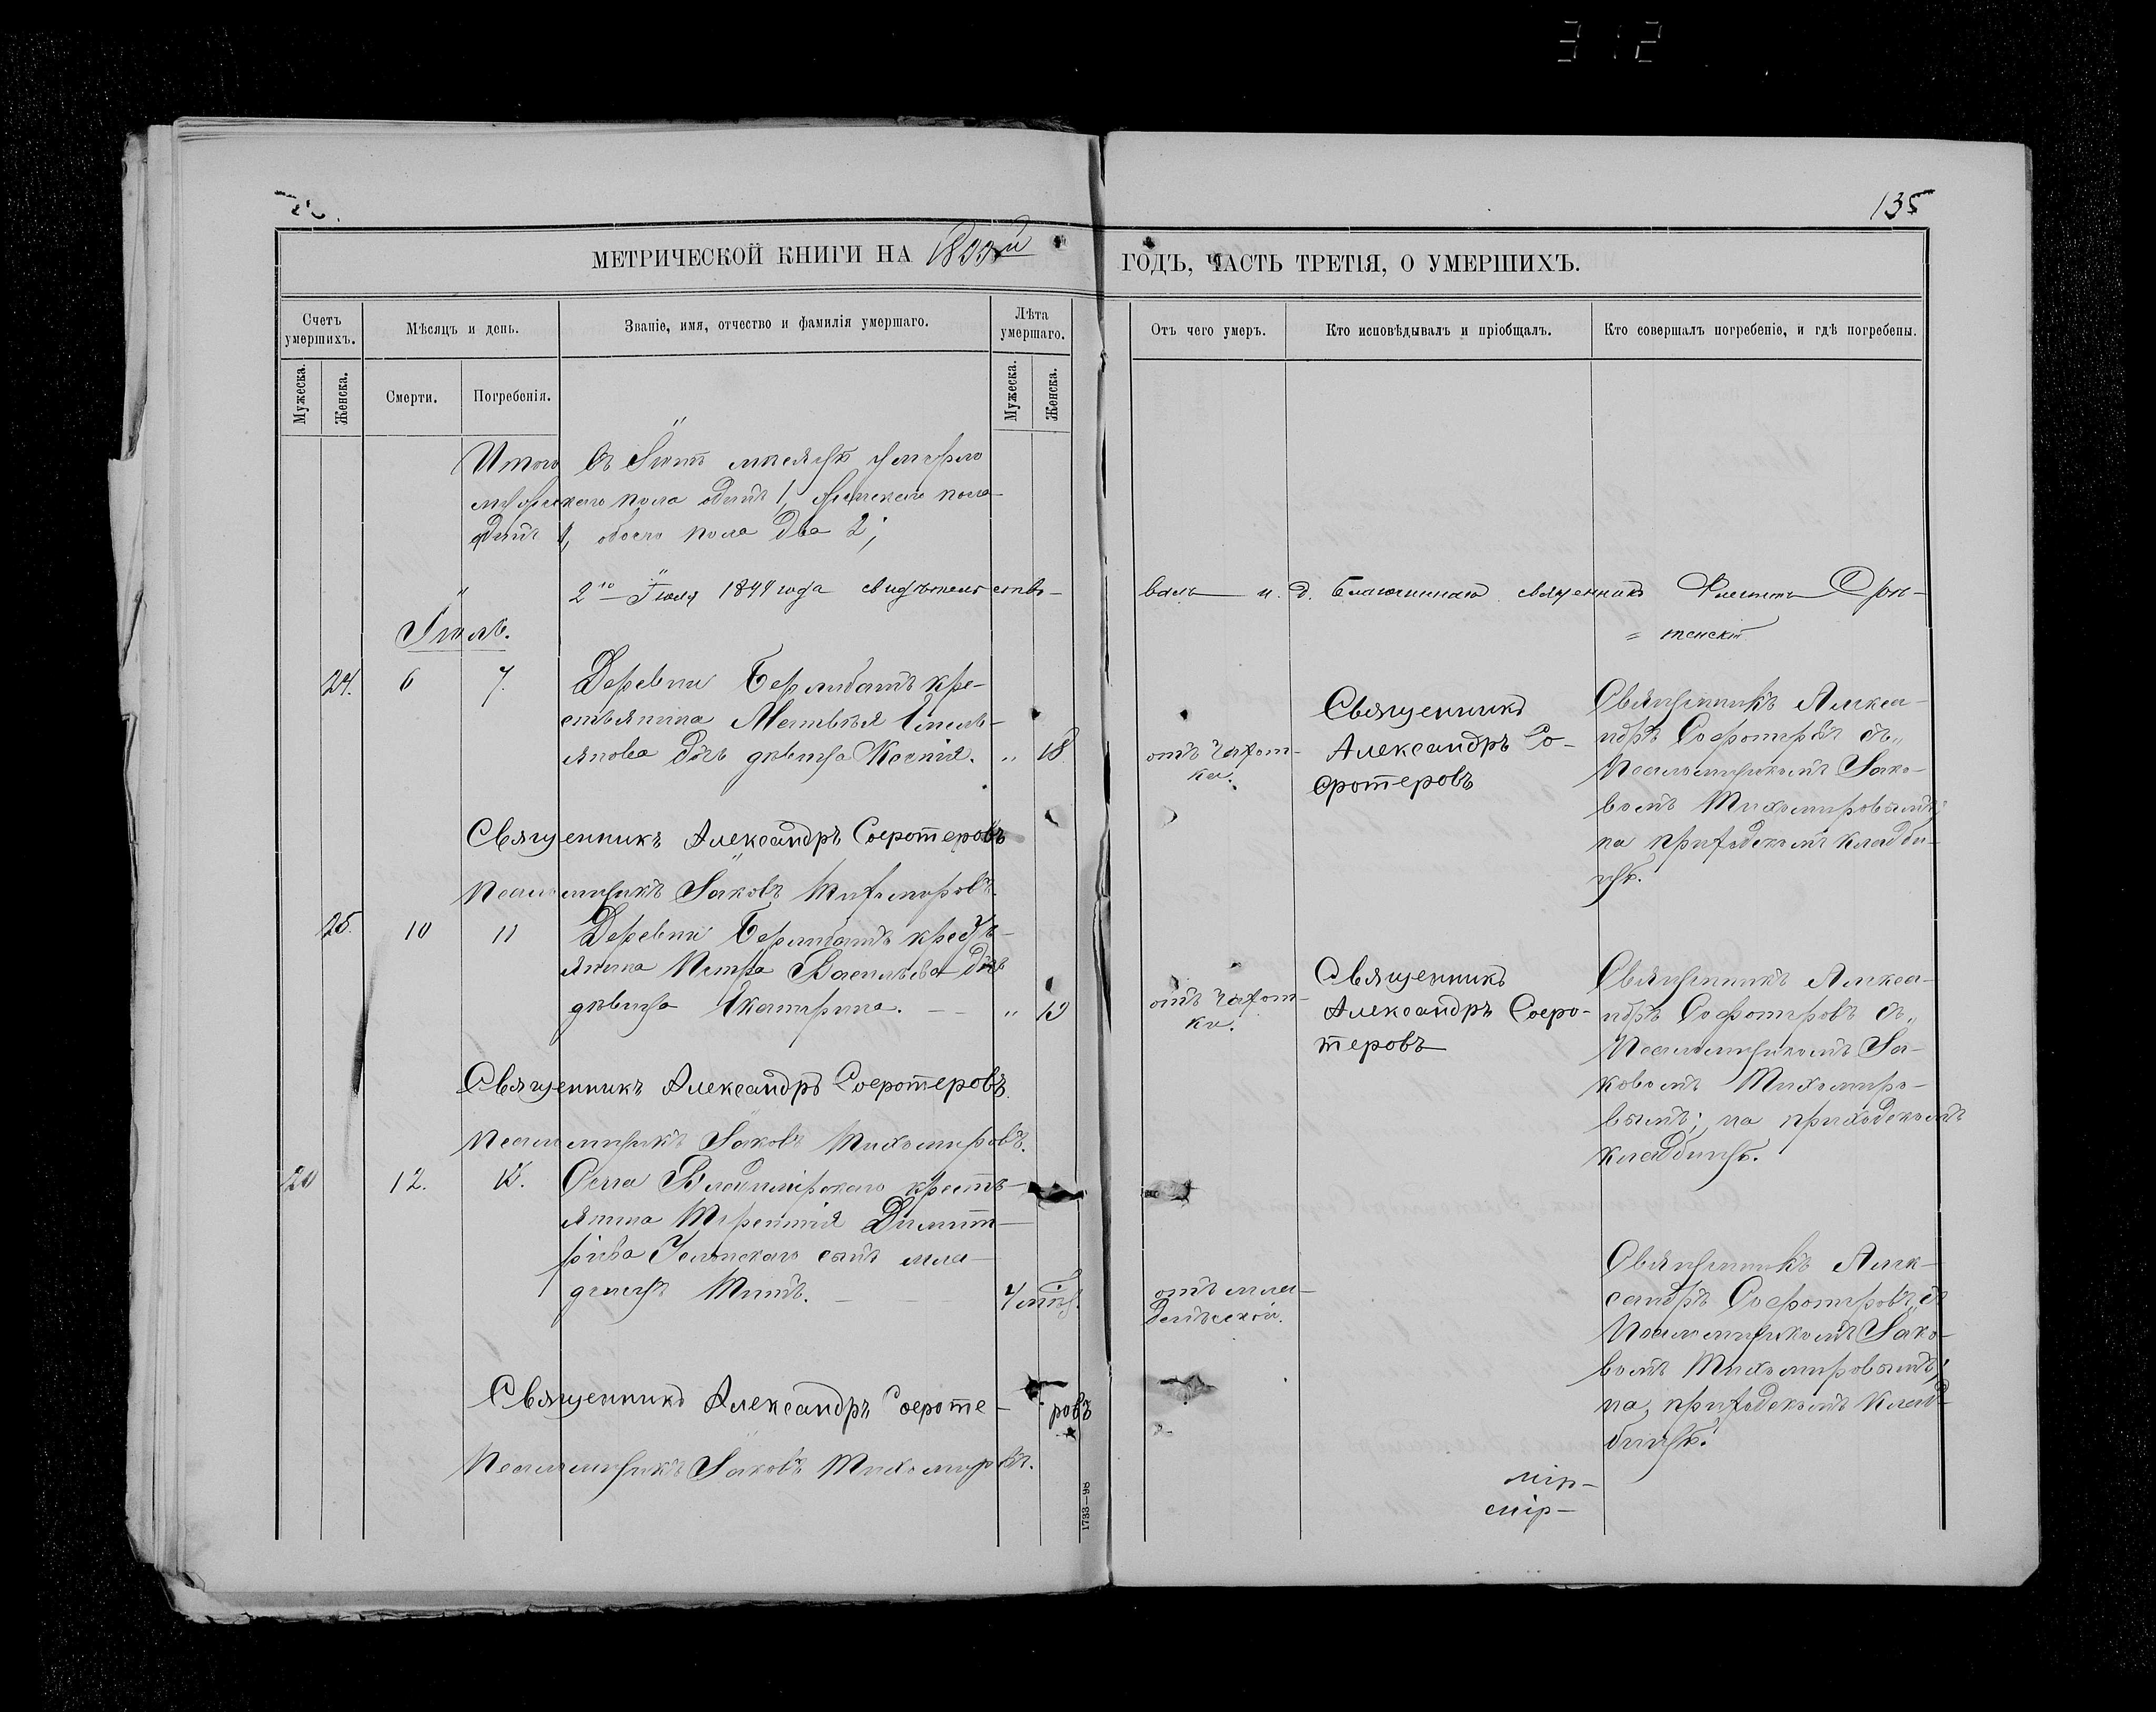 312
135
МЕТРИЧЕСКОЙ КНИГИ НА 1899й ГОДЪ, ЧАСТЬ ТРЕТІЯ, О УМЕРШИХЪ.
Счетъ умершихъ.
Мѣсяцъ и день.
Званіе, имя, отчество и фамилія умершаго.
Лѣта умершаго.
Отъ чего умеръ.
Кто исповѣдывалъ и пріобщалъ.
Кто совершалъ погребеніе, и гдѣ погребены.
Мужеска.
Женска.
Смерти.
Погребенія.
Мужеска.
Женска.
Итого въ Іюнѣ мѣсяцѣ умерло
мужескаго пола одинъ 1, женскаго пола
одинъ 1, обоего пола два 2;
2го Іюля 1899 года свидѣтельство-
валъ и. д. Благочиннаго священникъ
Іюль.
24. 6 7. Деревни
кре-
стьянина Матвѣя Емель-
янова дочь дѣвица Ксенія. " 18
отъ чахот-
ки.
Священникъ
Александръ Со-
фротеровъ
Священникъ Алекса-
ндръ Софотеровъ съ
Псаломщикомъ Іако-
вомъ Тихомировымъ;
на приходскомъ кладби-
щѣ.
Священникъ Александръ Софротеровъ
Псаломщикъ Іаковъ Тихомировъ.
25. 10 11 Деревни
кресть-
янина Петра Васильева дочь
дѣвица Екатерина. "
отъ чахот-
ки.
Священникъ
Александръ Софро-
теровъ
Священникъ Алекса-
ндръ Софотеровъ съ
Псаломщикомъ Іа-
ковомъ Тихомиро-
вымъ; на приходскомъ
кладбищѣ.
Священникъ Александръ Софротеровъ.
Псаломщикъ Іаковъ Тихомировъ.
20 12. Села Владимірскаго кресть-
янина Терентія Димит-
ріева
сынъ мла-
денецъ Титъ.
отъ мла-
денческой.
Священникъ Алек-
сандръ Софотеровъ съ
Псаломщикомъ Іако-
вомъ Тихомировымъ;
на приходскомъ клад-
бищѣ.
Священникъ Александръ Софроте-ровъ
Псаломщикъ Іаковъ Тихомировъ.
1733—98